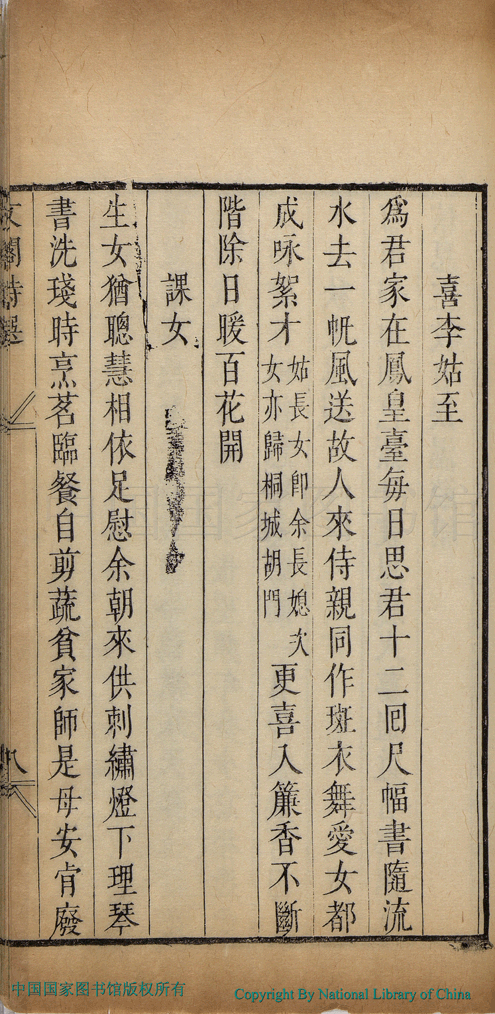 喜李姑至
爲君家在鳳皇臺每日思君十二囘尺幅書隨流
水去一帆風送故人來侍親同作斑衣舞愛女都
成咏絮才姑長女卽余長媳次女亦歸桐城胡門更喜入簾香不斷
階除日暖百花開
課女
生女猶聰慧相依足慰余朝來供刺繡燈下理琴
書洗琖時烹茗臨餐自剪蔬貧家師是母安肯廢
八
中国国家图书馆版权所有
Copyright By National Library of China